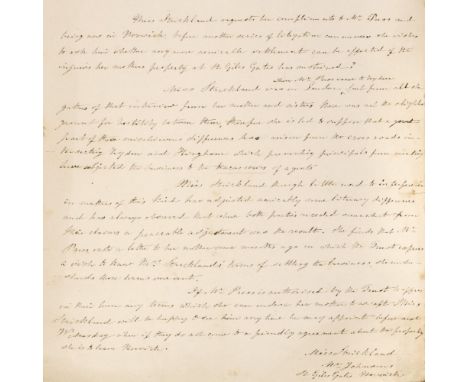 Miss Strickland requests her compliments to Mr. Peess and
being now in Norwich before another series of litigation commences she wishes
to ask him whether any more amicable settlement can be effected of the
injuries her mothers property at St Giles Gates has sustained?
When Mr. came to
Miss Strickland was in London, but from all she
gathers of that interview from her mother and sisters there was not the slightest
ground for hostility between them, therefore she is led to suppose that a great
part of these mischievous differences has arisen from the cross roads in
and Hingham which preventing principals from meeting
have subjected the business to the of agents
Miss Strickland though little used to interference
in matters of this kind has adjusted amicably some literary differences
and has always observed that when both parties receded somewhat from
their claims a peaceable adjustment was the result. She finds that Mr
wrote a letter to her mother some months ago in which he must express
a wish to know Mrs. Stricklands' terms of settling the business, she under-
stands those terms were sent.
If Mr. is authorised by the Trust to appear
on their terms any terms which she can induce her mother to accept Miss
Strickland will be happy to see him any time he may appoint before next
Wednesday when if they do not come to a friendly agreement about the property
she is to leave Norwich.
Miss Strickland
Mrs Johnsons
St Giles Gates Norwich